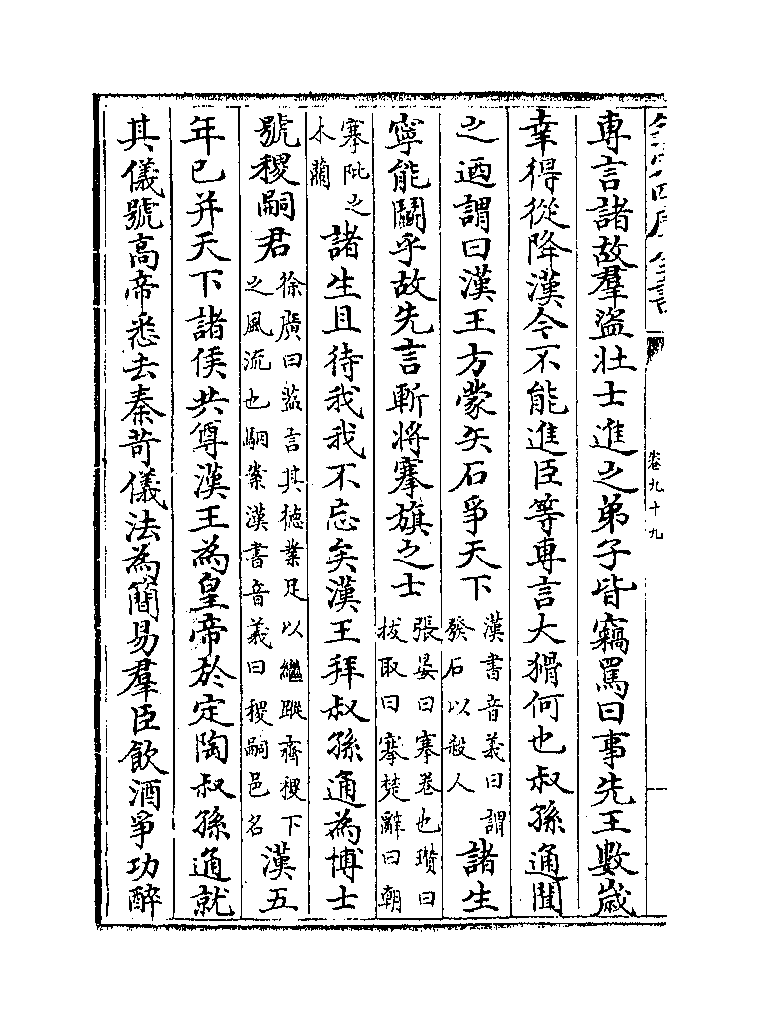 欽定四庫全書
卷九十九
專言諸故羣盜壯士進之弟子皆竊罵曰事先王數歲
幸得從降漢今不能進臣等專言大猾何也叔孫通聞
之迺謂曰漢王方蒙矢石爭天下漢書音義曰謂發石以殺人諸生
寧能鬬乎故先言斬將搴旗之士張晏曰搴卷也瓚曰拔取曰搴楚辭曰朝
搴阰之木蘭諸生且待我我不忘矣漢王拜叔孫通為博士
號稷嗣君徐廣曰蓋言其德業足以繼蹤齊稷下之風流也駰案漢書音義曰稷嗣邑名漢五
年已并天下諸侯共尊漢王為皇帝於定陶叔孫通就
其儀號高帝悉去秦苛儀法為簡易羣臣飲酒爭功醉